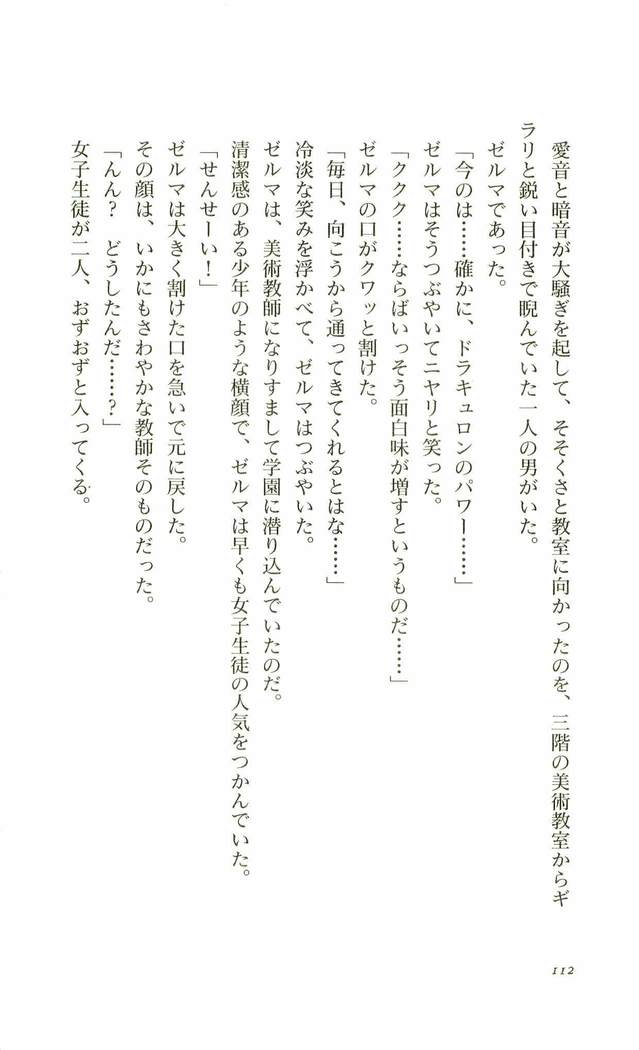 愛音と暗音が大騒ぎを起して、そそくさと教室に向かったのを、三階の美術教室からギ
ラリと鋭い目付きで睨んでいた一人の男がいた。
ゼルマであった。
「今のは……確かに、ドラキュロンのパワー……」
ゼルマはそうつぶやいてニヤリと笑った。
「ククク……ならばいっそう面白味が増すというものだ……」
ゼルマの口がクワッと割けた。
「毎日、向こうから通ってきてくれるとはな……」
冷淡な笑みを浮かべて、ゼルマはつぶやいた。
ゼルマは、美術教師になりすまして学園に潜り込んでいたのだ。
清潔感のある少年のような横顔で、ゼルマは早くも女子生徒の人気をつかんでいた。
「せんせーい！」
ゼルマは大きく割けた口を急いで元に戻した。
その顔は、いかにもさわやかな教師そのものだった。
「んん？　どうしたんだ……？」
女子生徒が二人、おずおずと入ってくる。
112